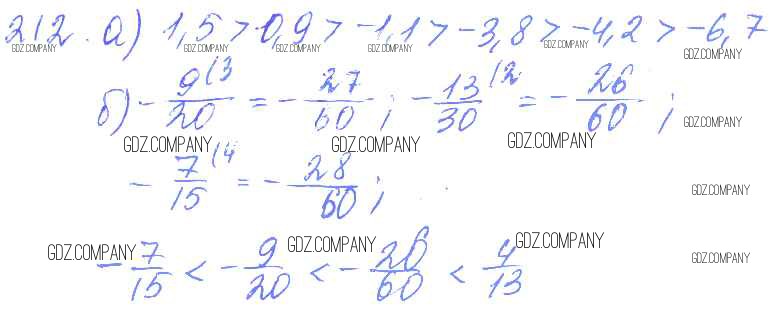 212. а) 1,5 > 0,9 > -1,1 > -3,8 > -4,2 > -6,7
GDZ.COMPANY GDZ.COMPANY GDZ.COMPANY GDZ.COMPANY GDZ.COMPANY GDZ.COMPANY GDZ.COMPANY
б) - 9/20 (3 = - 27/60 ; - 13/30 (2 = - 26/60 ;
GDZ.COMPANY GDZ.COMPANY GDZ.COMPANY GDZ.COMPANY
- 7/15 (4 = - 28/60 ;
GDZ.COMPANY
GDZ.COMPANY GDZ.COMPANY GDZ.COMPANY GDZ.COMPANY
- 7/15 < - 9/20 < - 26/60 < 4/13